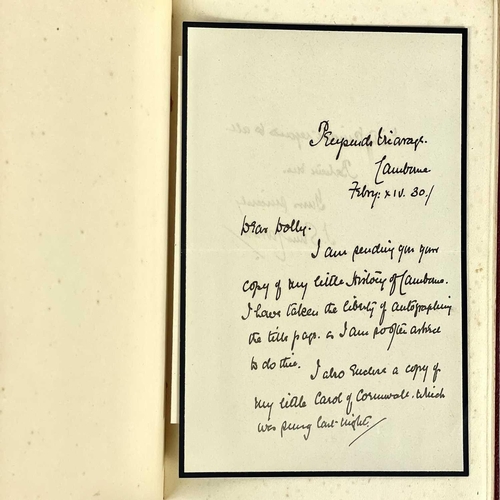 Vicarage.
Camborne
Febry: XIV. 30/
Dear Dolly.
I am sending you your
copy of my little History of Camborne.
I have taken the liberty of autographing
the title page. as I am so often asked
to do this.
I also enclose a copy of
my little Carol of Cornwall. which
was sung last night/